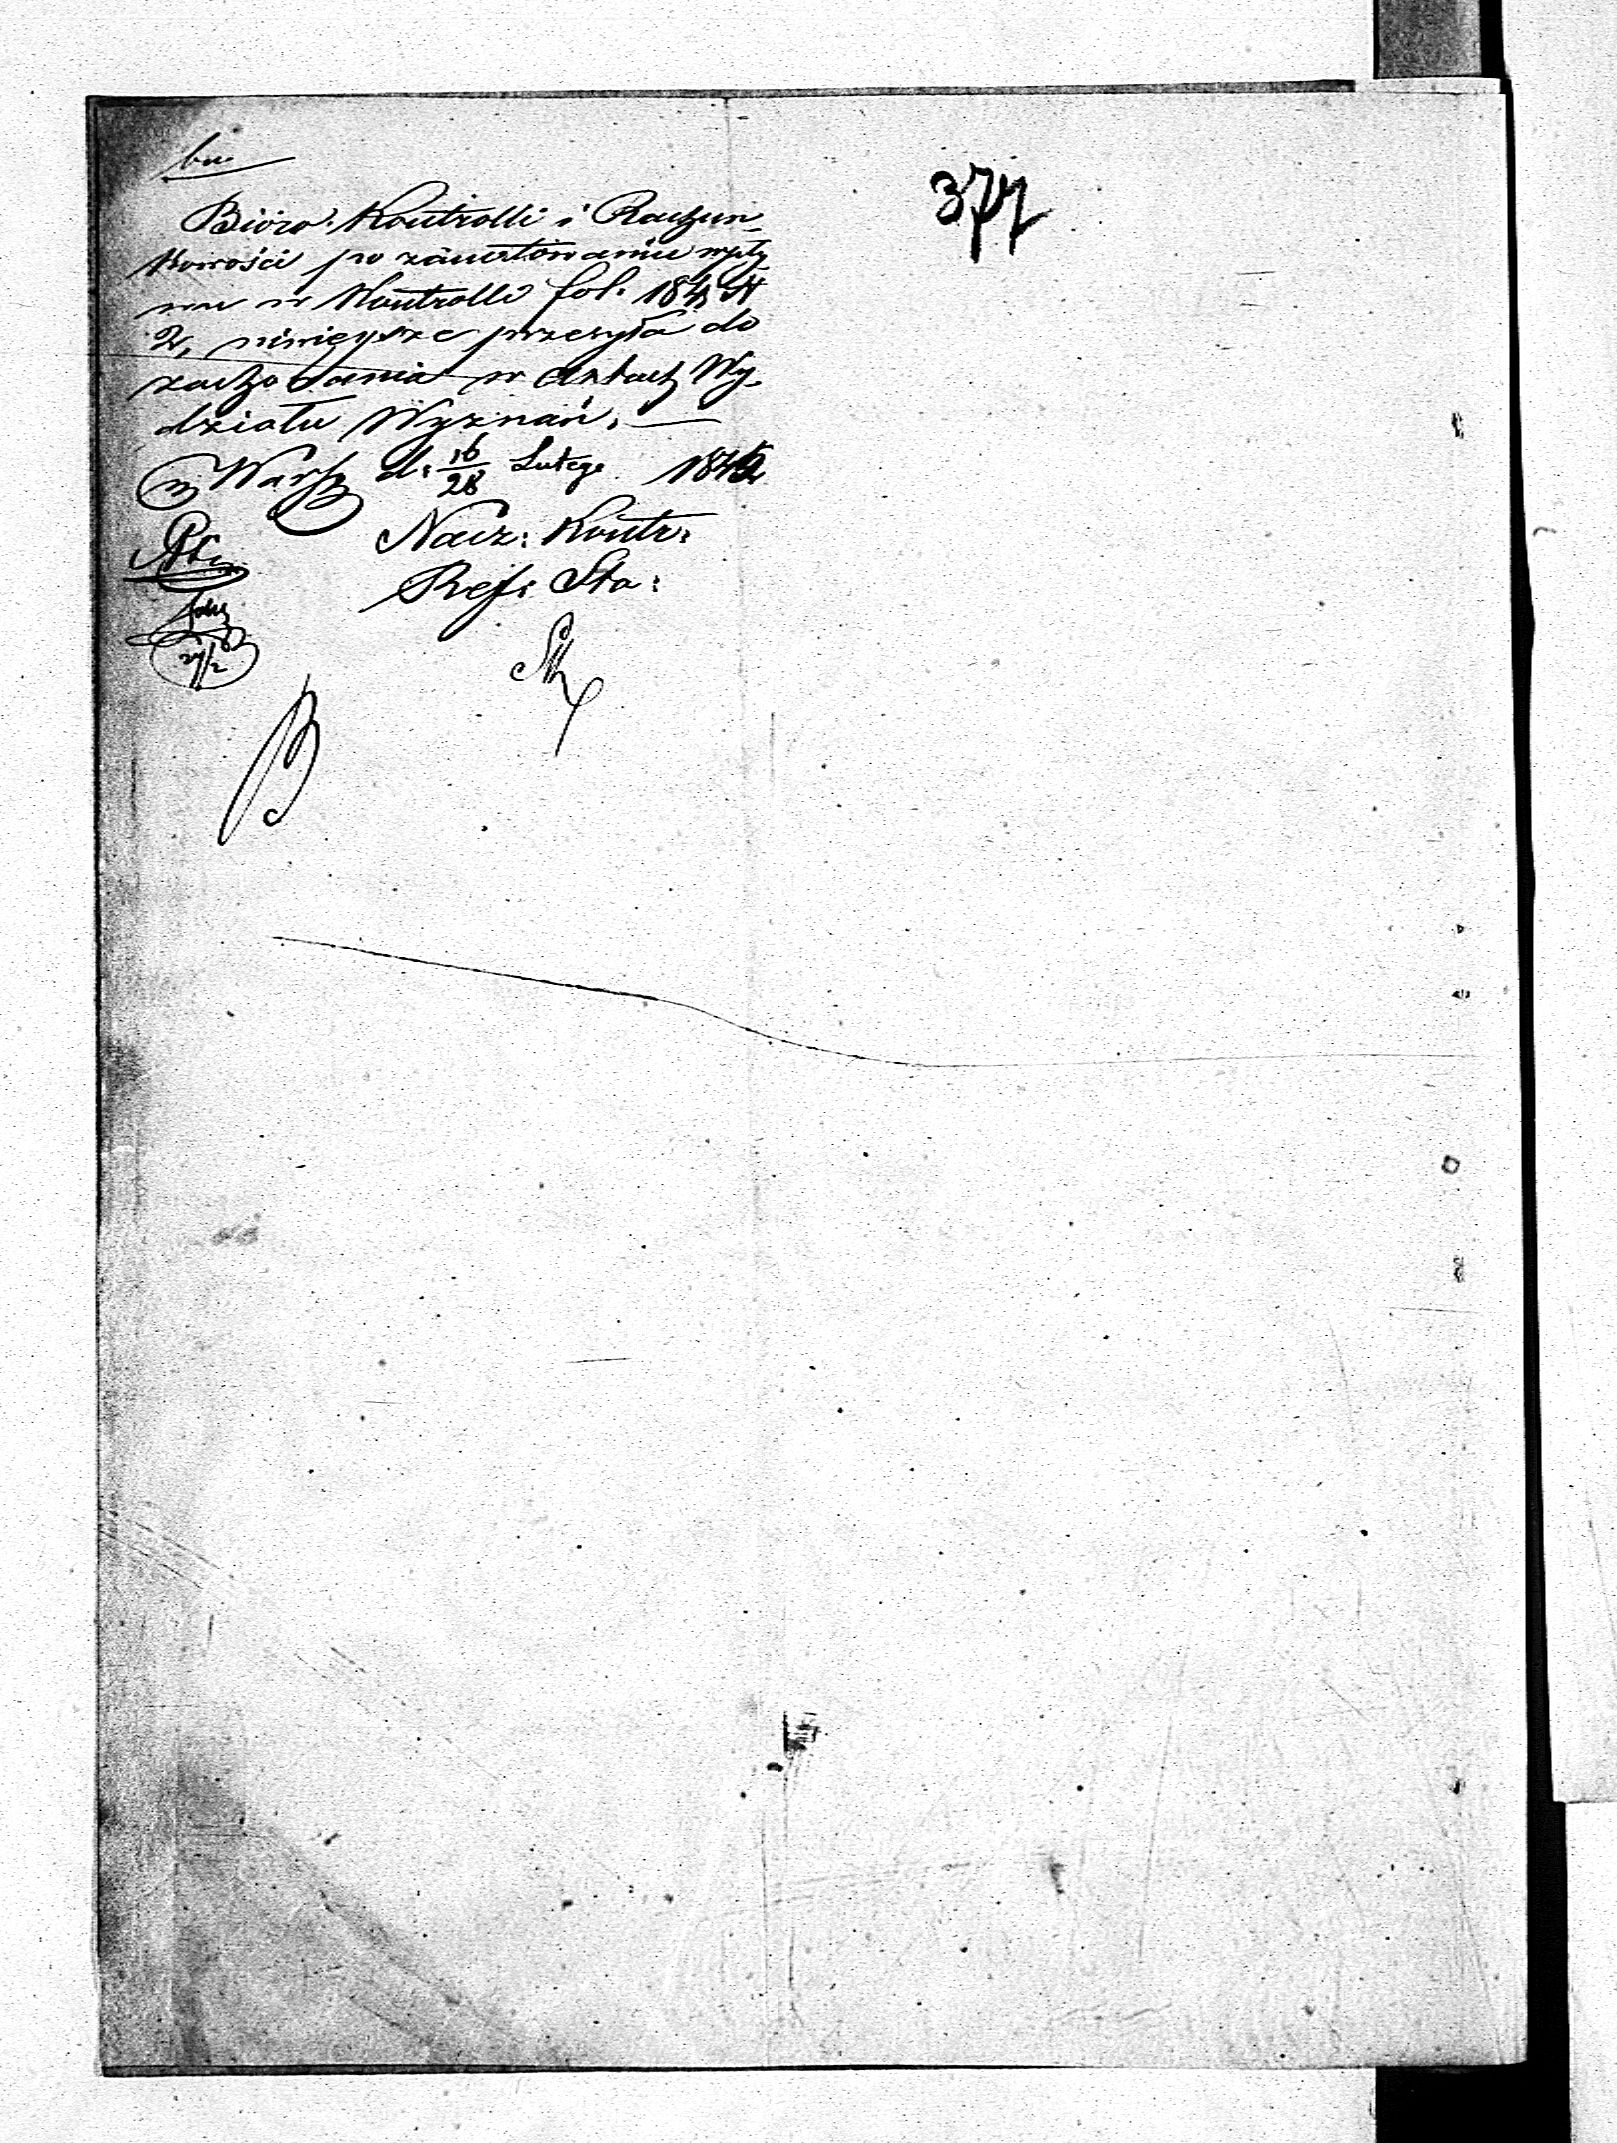 377
Bióro Kontrolli i Rachun-
kowości po zanotowaniu wpły-
wu w Kontrolli fol. 184 N
2, niniejsze przesyła do
zachowania w Aktach Wy-
działu Wyznań. —
w Warsz d: 16/28 Lutego 1842
Nacz: Kontr:
Ref: Sta:
27/2